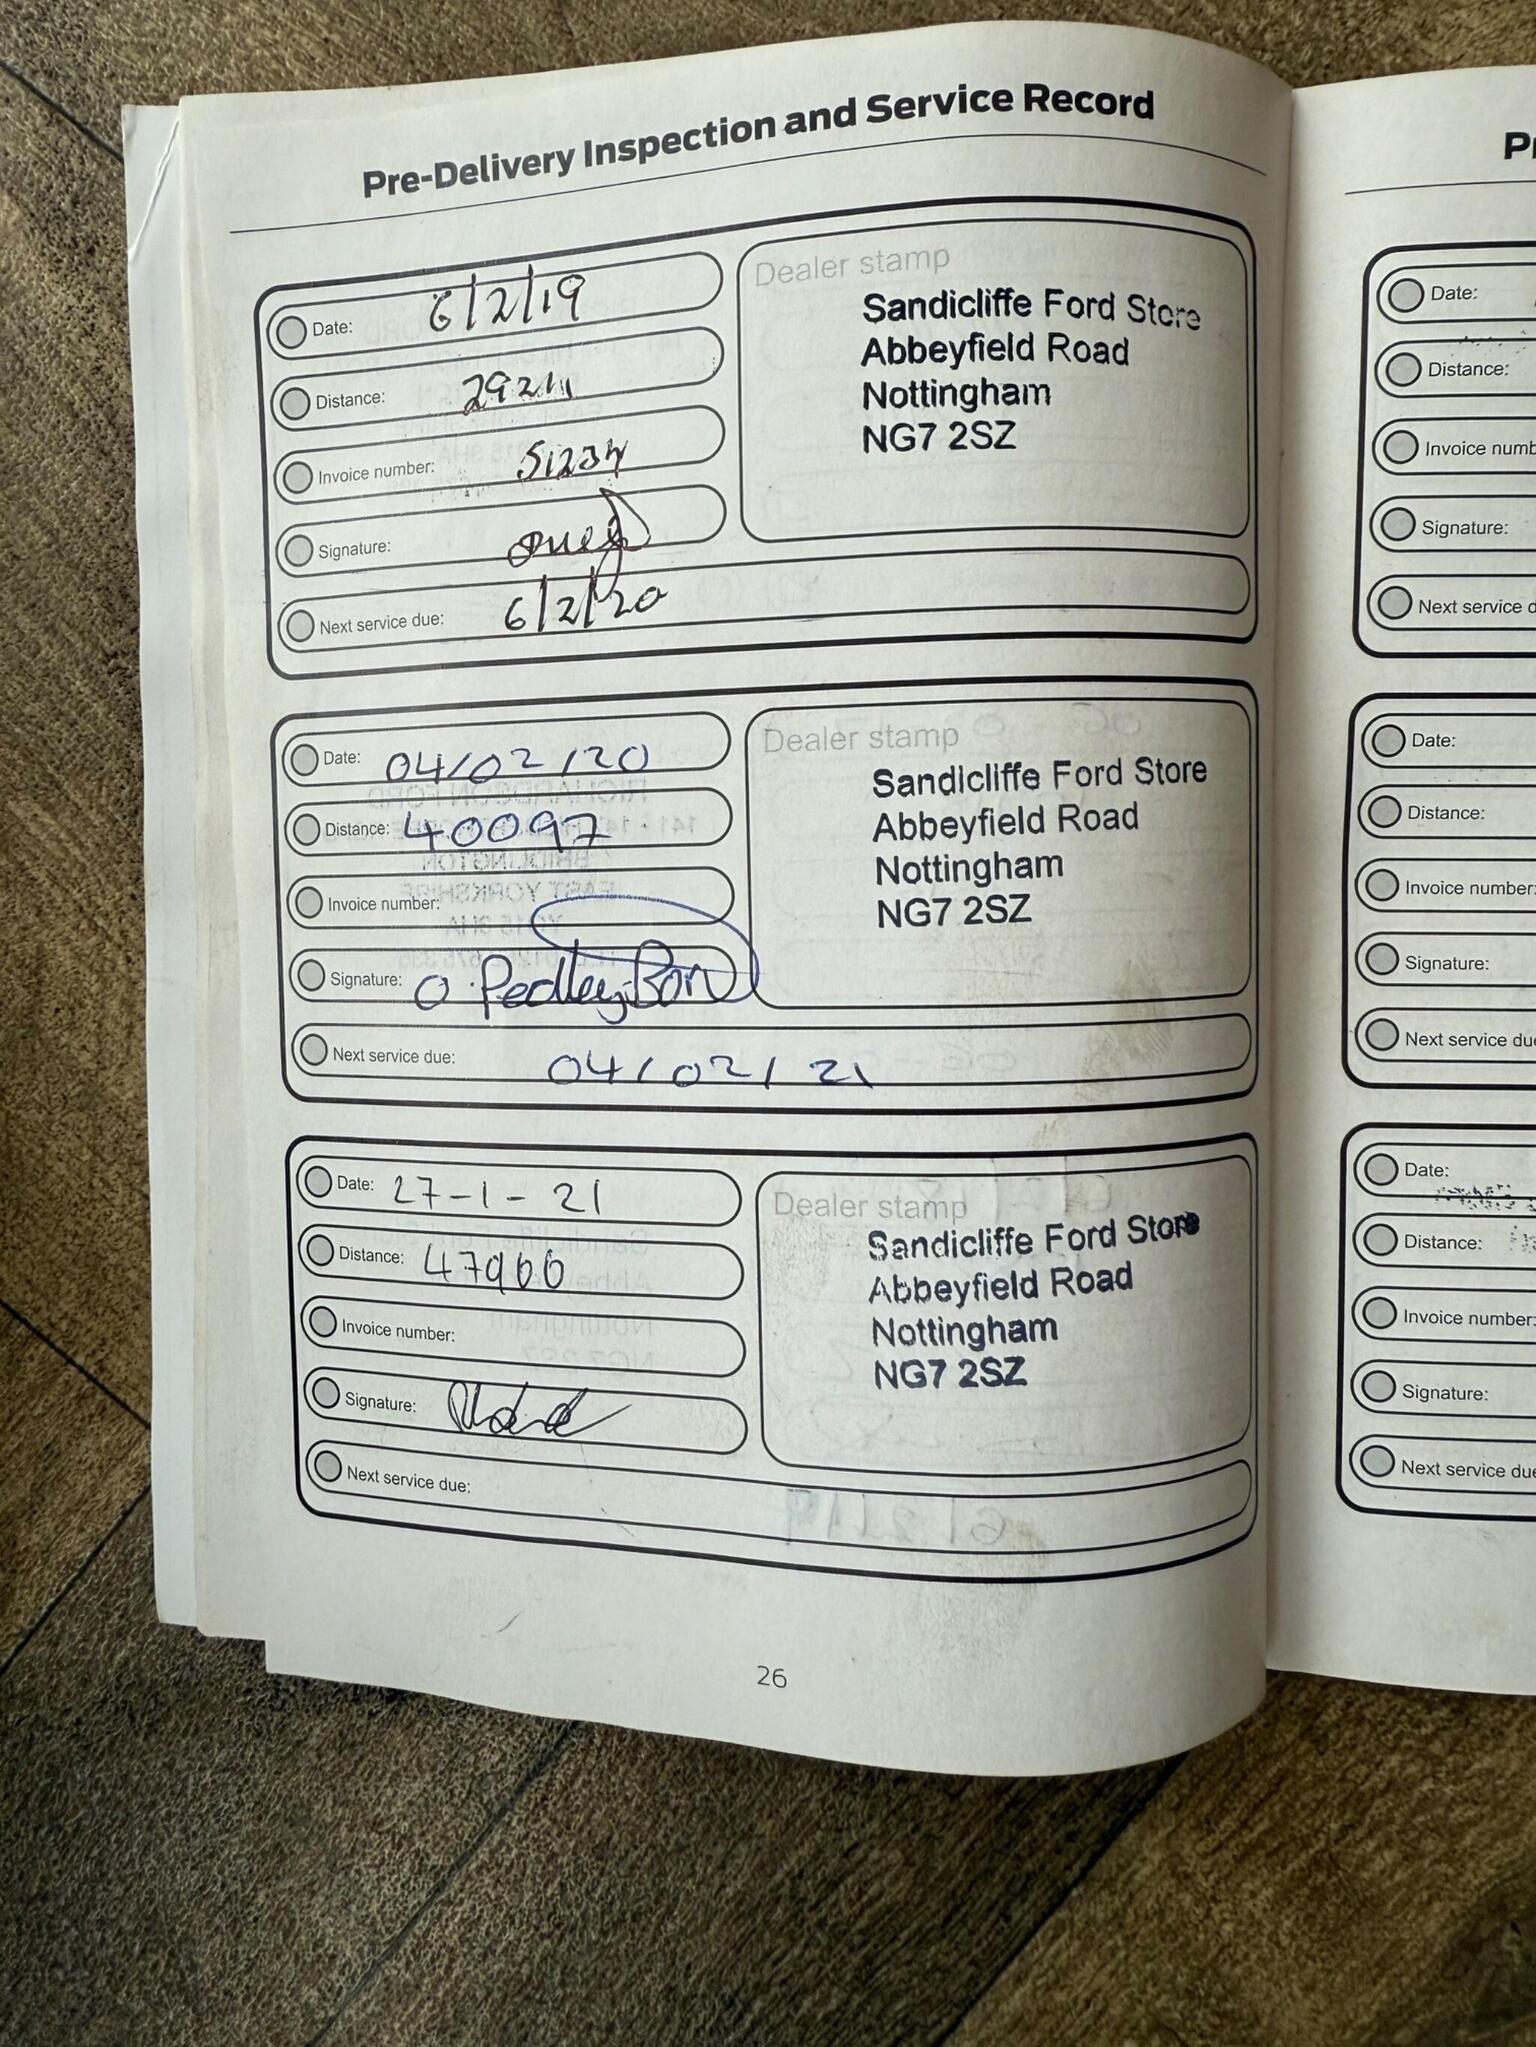 Pre-Delivery Inspection and Service Record
Date: 6/2/19
Distance:
Invoice number: 51234
Signature:
Next service due: 6/2/20
Dealer stamp
Sandicliffe Ford Store
Abbeyfield Road
Nottingham
NG7 2SZ
Date: 04/02/20
Distance: 40097
Invoice number:
Signature: O. Pedley-Bon
Next service due: 04/02/21
Dealer stamp
Sandicliffe Ford Store
Abbeyfield Road
Nottingham
NG7 2SZ
Date: 27-1-21
Distance: 47900
Invoice number:
Signature:
Next service due:
Dealer stamp
Sandicliffe Ford Store
Abbeyfield Road
Nottingham
NG7 2SZ
26
Date:
Distance:
Invoice numb
Signature:
Next service d
Date:
Distance:
Invoice number:
Signature:
Next service due
Date:
Distance:
Invoice number:
Signature:
Next service due